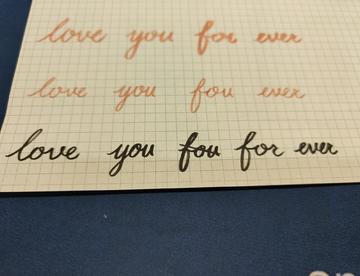 love you for ever
love you fou ever
love you fou for ever